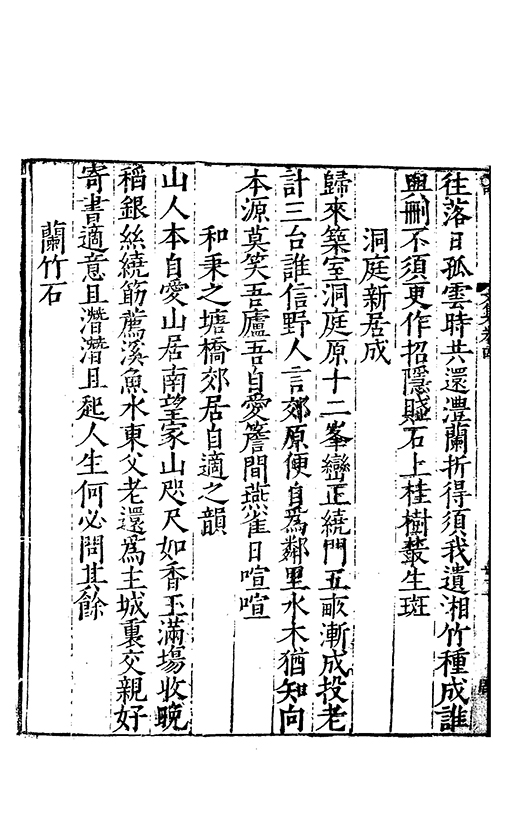 往落日孤雲時共還澧蘭折得須我遺湘竹種成誰
與刪不須更作招隱賦石上桂樹叢生斑
洞庭新居成
歸來築室洞庭原十二峯巒正繞門五畝漸成投老
計三台誰信野人言郊原便自為鄰里水木猶知向
本源莫笑吾廬吾自愛簷間燕雀日喧喧
和秉之塘橋郊居自適之韻
山人本自愛山居南望家山咫尺如香玉滿場收晚
稻銀絲繞筯薦溪魚水東父老還為主城裏交親好
寄書適意且潛潛且起人生何必問其餘
蘭竹石